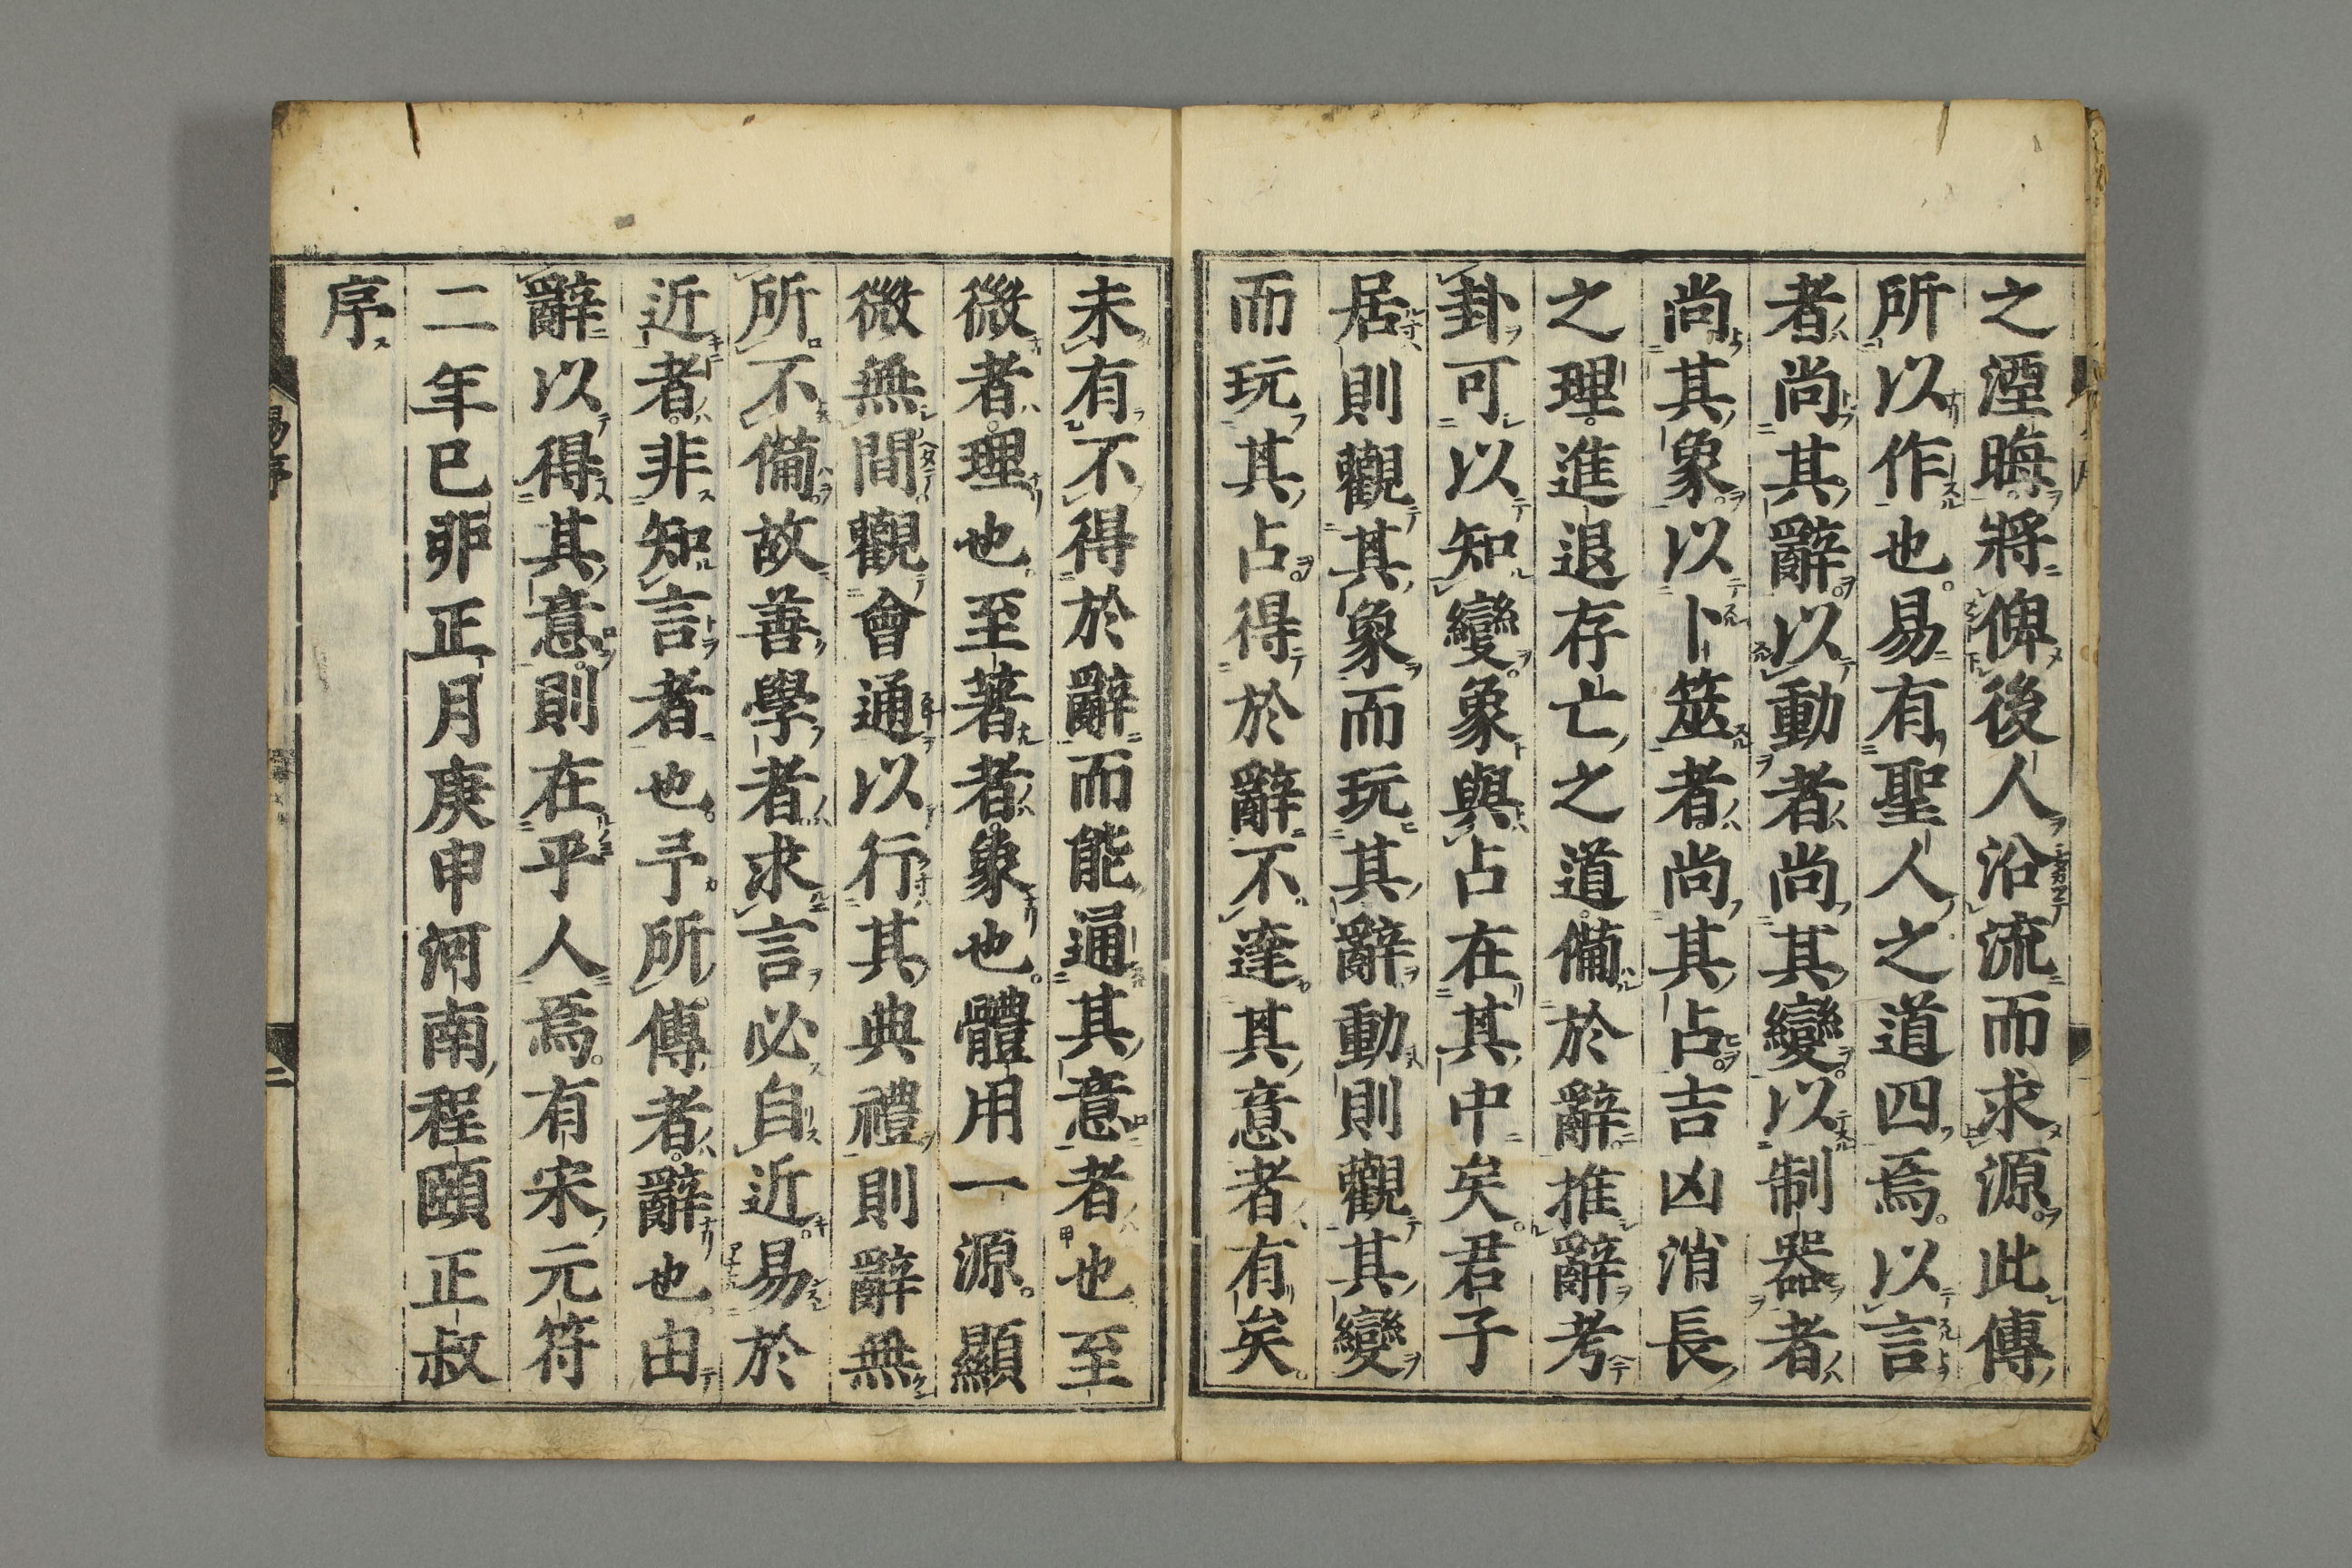 之湮晦將俾後人沿流而求源此傳
所以作也易有聖人之道四焉以言
者尚其辭以動者尚其變以制器者
尚其象以卜筮者尚其占吉凶消長
之理進退存亡之道備於辭推辭考
卦可以知變象與占在其中矣君子
居則觀其象而玩其辭動則觀其變
而玩其占得於辭不達其意者有矣
未有不得於辭而能通其意者也至
微者理也至著者象也體用一源顯
微無間觀會通以行其典禮則辭無
所不備故善學者求言必自近易於
近者非知言者也予所傳者辭也由
辭以得其意則在乎人焉有宋元符
二年已卯正月庚申河南程頤正叔
序
易序
二